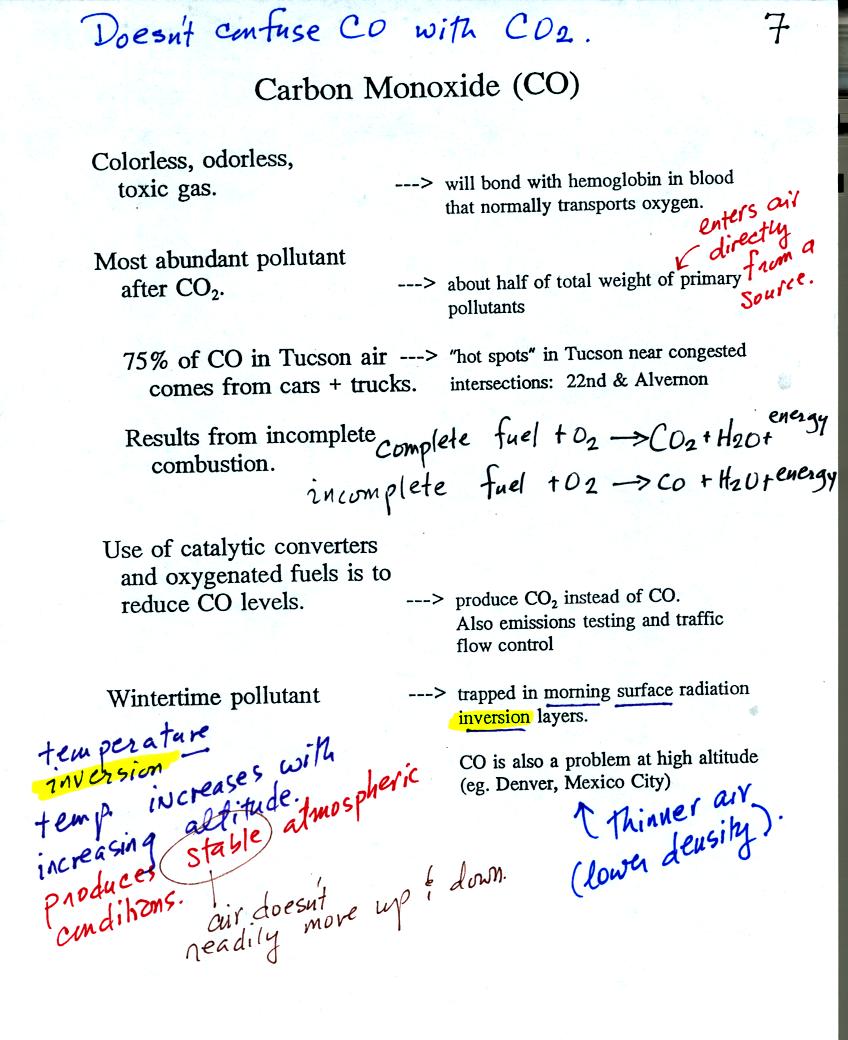 Doesn't confuse CO with CO2.
7
Carbon Monoxide (CO)
Colorless, odorless,
toxic gas.
---> will bond with hemoglobin in blood
that normally transports oxygen.
enters air
directly
from a
source.
Most abundant pollutant
after CO₂.
---> about half of total weight of primary
pollutants
75% of CO in Tucson air
comes from cars + trucks.
---> "hot spots" in Tucson near congested
intersections: 22nd & Alvernon
Results from incomplete
combustion.
complete fuel + O2 → CO2 + H2O + energy
incomplete fuel + O2 → CO + H2O + energy
Use of catalytic converters
and oxygenated fuels is to
reduce CO levels.
---> produce CO₂ instead of CO.
Also emissions testing and traffic
flow control
Wintertime pollutant
---> trapped in morning surface radiation
inversion layers.
CO is also a problem at high altitude
(eg. Denver, Mexico City)
↑ thinner air
(lower density).
temperature
inversion
temp. increases with
increasing altitude.
produces stable atmospheric
conditions.
air doesn't
readily move up & down.